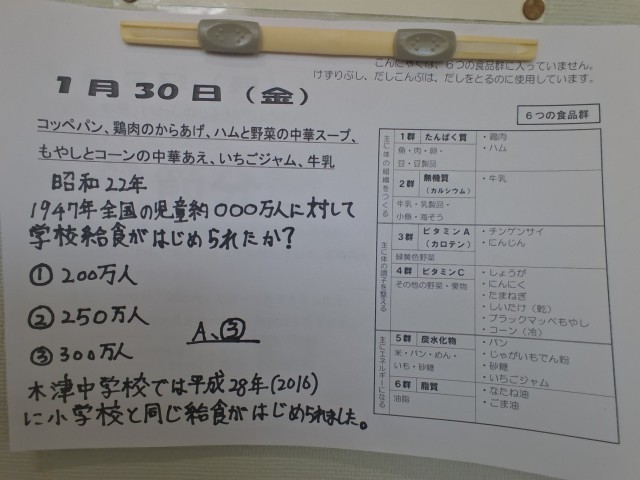 こんにゃくは、6つの食品群に入っていません。
けずりぶし、だしこんぶは、だしをとるのに使用しています。
1月30日(金)
コッペパン、鶏肉のからあげ、ハムと野菜の中華スープ、
もやしとコーンの中華あえ、いちごジャム、牛乳
昭和22年
1947年全国の児童約〇〇〇万人に対して
学校給食がはじめられたか?
① 200万人
② 250万人
③ 300万人
A、③
木津中学校では平成28年(2016)
に小学校と同じ給食がはじめられました。
6つの食品群
主に体の組織をつくる
1群 たんぱく質
魚・肉・卵・
豆・豆製品
・鶏肉
・ハム
2群 無機質
(カルシウム)
牛乳・乳製品・
小魚・海そう
・牛乳
主に体の調子を整える
3群 ビタミンA
(カロテン)
緑黄色野菜
・チンゲンサイ
・にんじん
4群 ビタミンC
その他の野菜・果物
・しょうが
・にんにく
・たまねぎ
・しいたけ(乾)
・ブラックマッペもやし
・コーン(冷)
主にエネルギーになる
5群 炭水化物
米・パン・めん・
いも・砂糖
・パン
・じゃがいもでん粉
・砂糖
・いちごジャム
6群 脂質
油脂
・なたね油
・ごま油